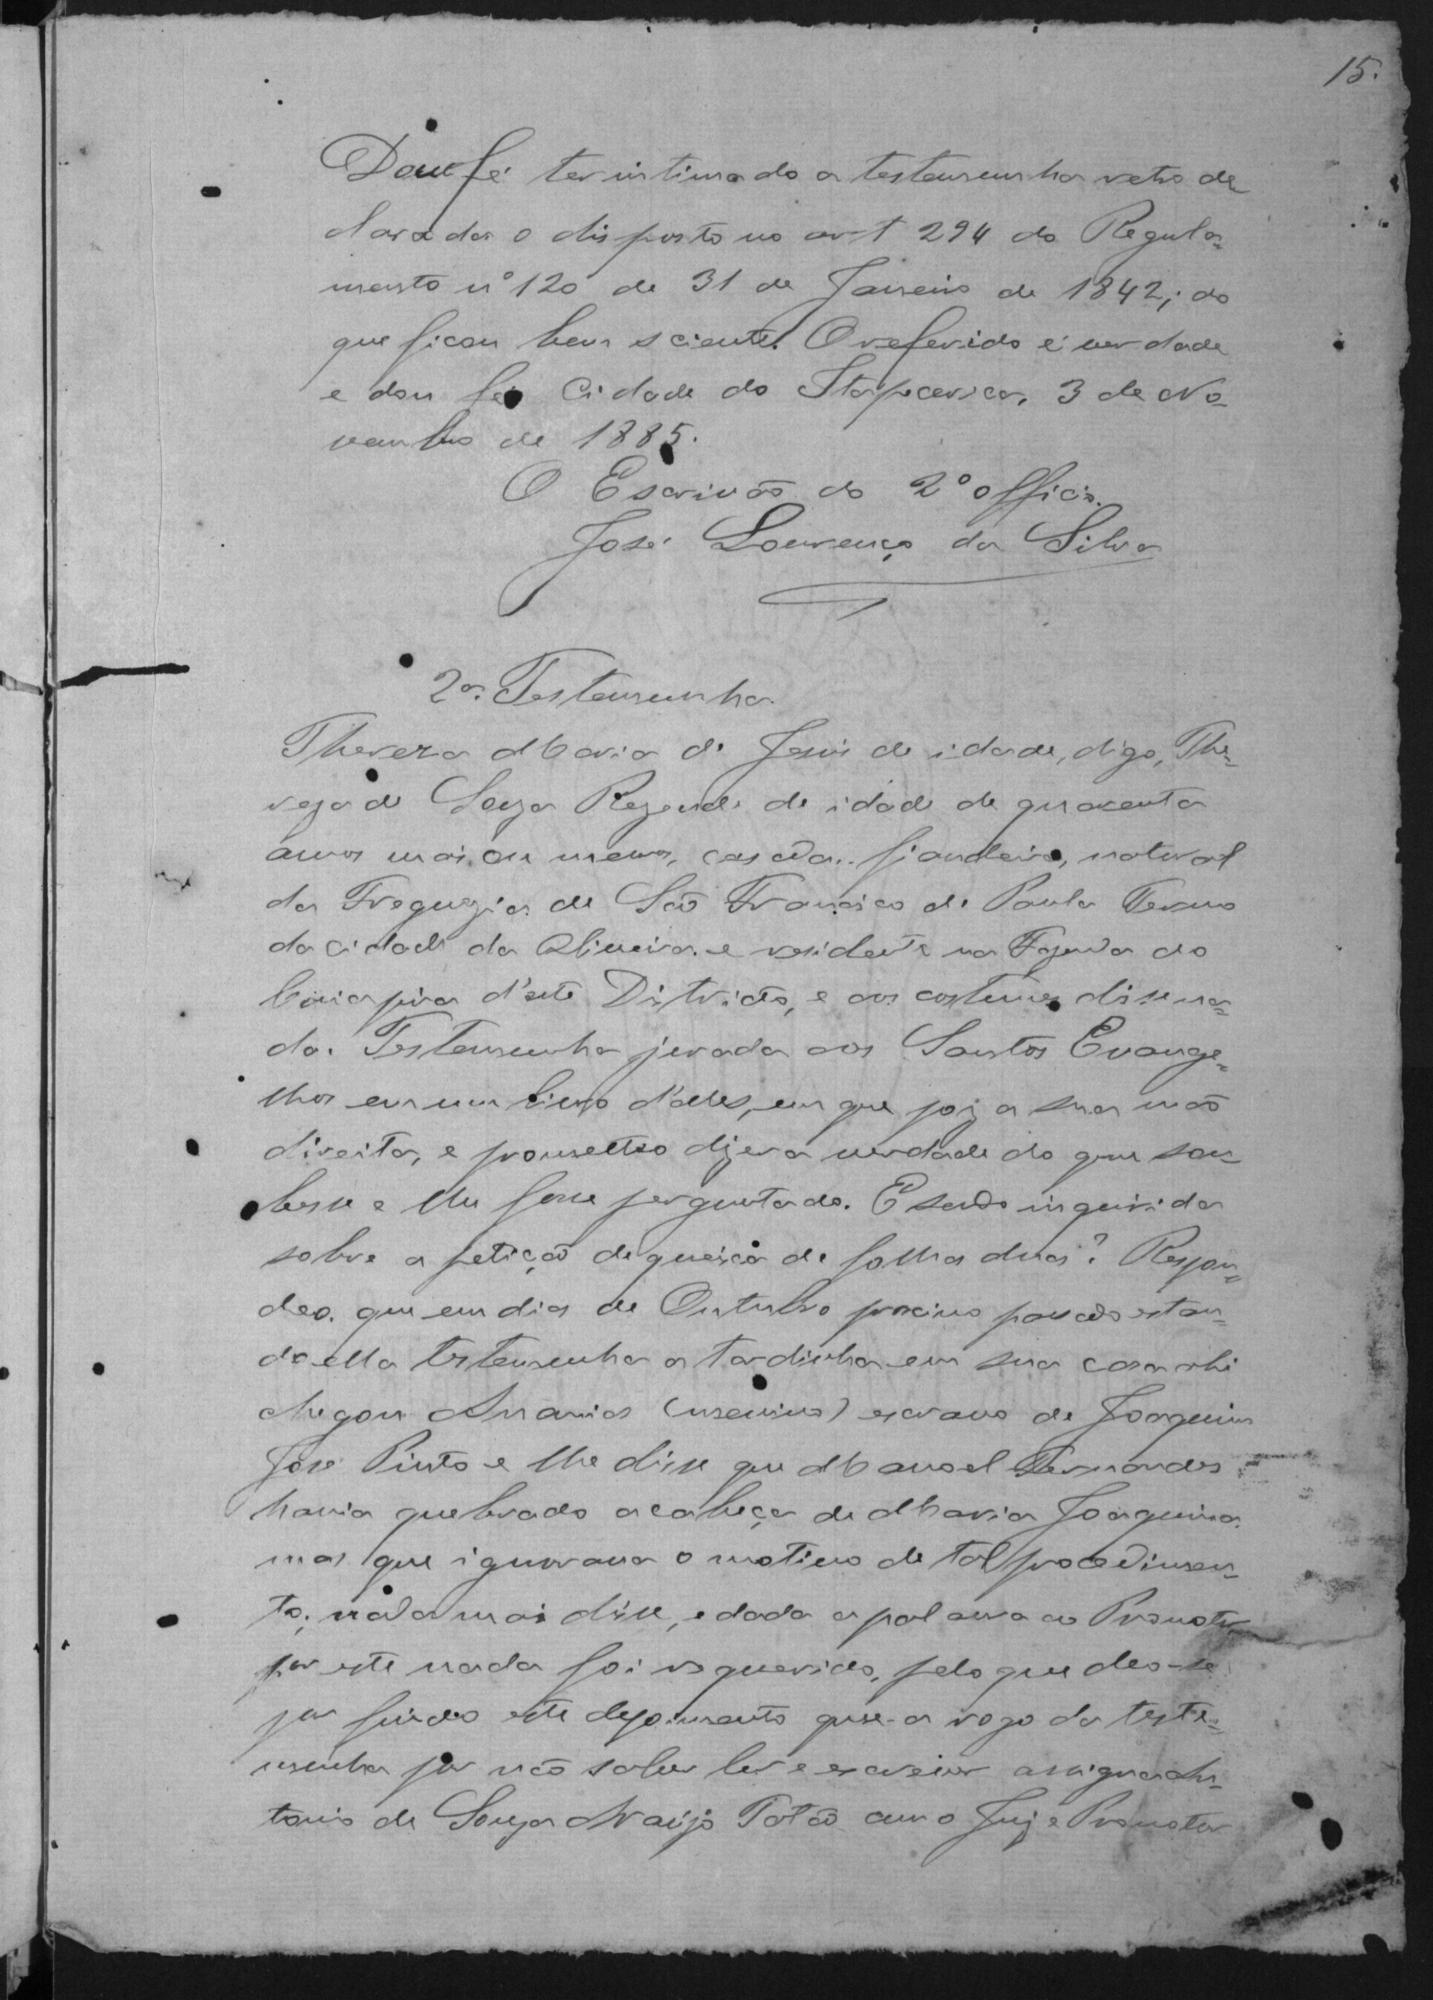 15.
Dou fé ter intimado a testemunha retro de
clarada o disposto no art 294 do Regula-
mento nº 120 de 31 de Janeiro de 1842; do
que ficou bem sciente. O referido é verdade
e dou fé. Cidade do Itapecerica, 3 de No-
vembro de 1885.
O Escrivão do 2º officio.
José Lourenço da Silva
2ª. Testemunha
Thereza Maria de Jesus de idade, digo, The-
reza de Souza Rezende de idade de quarenta
annos mais ou menos, casada, fiandeira, natural
da Freguezia de São Francisco de Paula Termo
da cidade da Oliveira e residente na Fazenda do
d'este Districto, e aos costumes disse na-
da. Testemunha jurada aos Santos Evange-
lhos em um livro d'elles, em que poz a sua mão
direita, e prometteo dizer a verdade do que sou-
besse e lhe fosse perguntado. E sendo inquirida
sobre a petição de queixa de folhas duas? Respon-
deo. que em dias de Outubro proximo passado estan-
do ella testemunha a tardinha em sua casa ahi
chegou Annanias (menino) escravo de Joaquim
José Pinto e lhe disse que Manoel Fernandes
havia quebrado a cabeça de Maria Joaquina
mas que ignorava o motivo de tal procedimen-
to; nada mais disse, e dada a palavra ao Promotor
por este nada foi requerido, pelo que deo-se
por findo este depoimento que a rogo da teste-
munha por não saber ler e escrever assigna An-
tonio de Souza Araujo Totão com o Juiz e Promotor